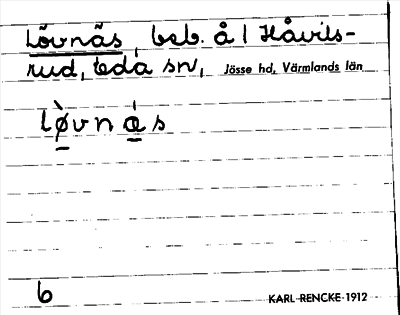 Lövnäs, beb. å 1 Håvils-
rud, Eda sn, Jösse hd, Värmlands län
lø̀vnǽs
6 KARL RENCKE 1912